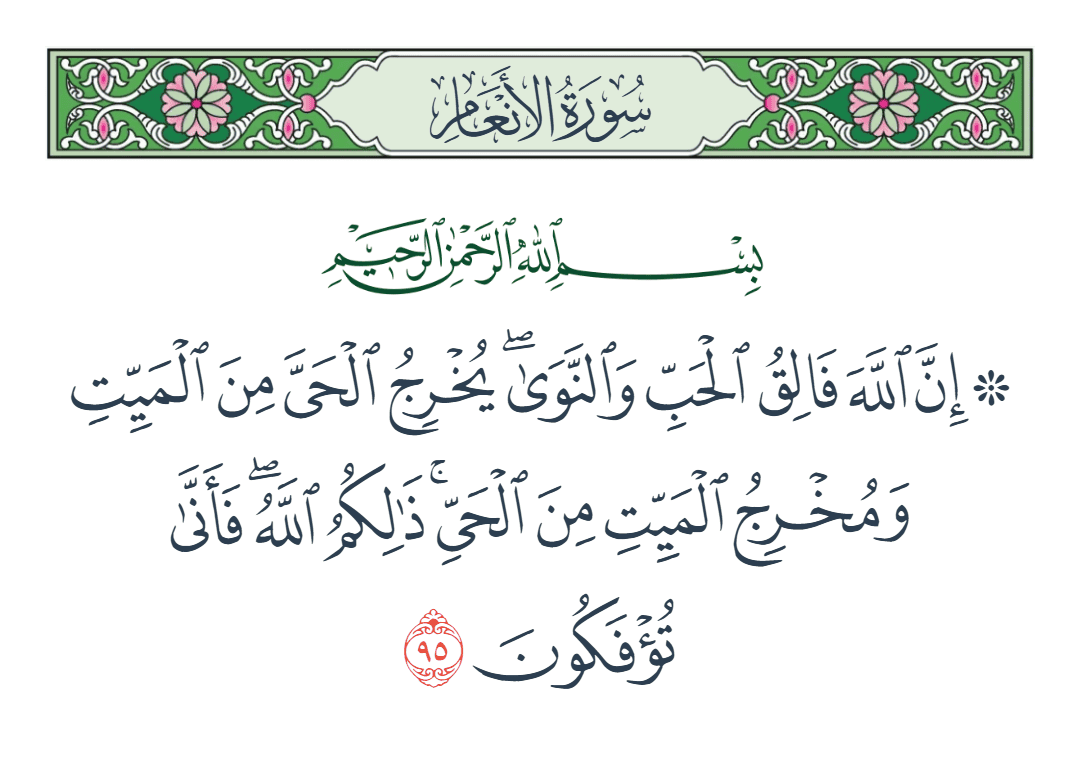 سُورَةُ الأَنْعَامِ
بِسْمِ ٱللَّهِ ٱلرَّحْمَٰنِ ٱلرَّحِيمِ
۞ إِنَّ ٱللَّهَ فَالِقُ ٱلْحَبِّ وَٱلنَّوَىٰ ۖ يُخْرِجُ ٱلْحَىَّ مِنَ ٱلْمَيِّتِ
وَمُخْرِجُ ٱلْمَيِّتِ مِنَ ٱلْحَىِّ ۚ ذَٰلِكُمُ ٱللَّهُ ۖ فَأَنَّىٰ
تُؤْفَكُونَ ٩٥